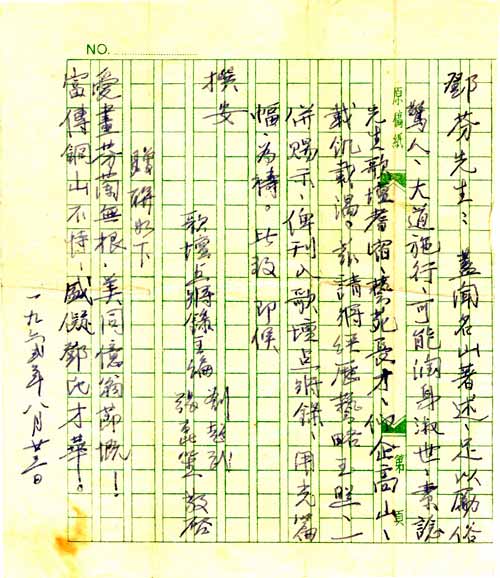 鄧芬先生:蓋聞名山著述、足以勵俗
驚人、大道施行、可能潤身淑世、素諗
先生歌壇耆宿、藝苑長才、仰企高山、
載飢載渴。茲請將經歷藝略玉照、一
併賜示、俾刊入歌壇点將錄、用光篇
幅、為禱。此致 即候
撰安
歌壇点將錄主編 劉
張 敬啓
贈聯如下
愛畫芬蘭無根、美同憶翁節慨!
富傳銅山不恃、盛儗鄧氏才華!
一九六五年八月廿二日
NO.
原稿紙
第 頁